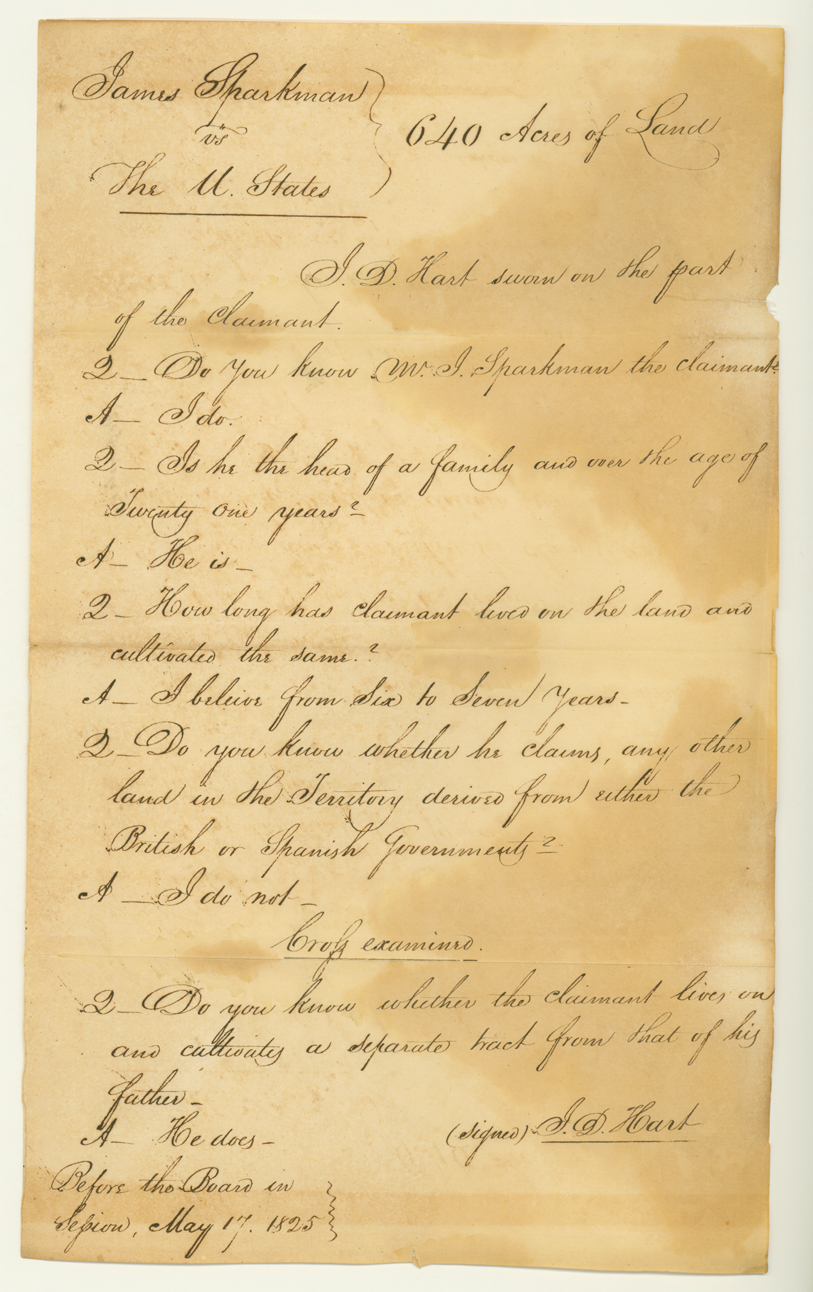 James Sparkman
vs
The U. States
640 Acres of Land
I. D. Hart sworn on the part
of the Claimant.
Q — Do You know Mr. J. Sparkman the claimant?
A — I do.
Q — Is he the head of a family and over the age of
Twenty One years?
A — He is —
Q — How long has claimant lived on the land and
cultivated the same.?
A — I beleive from Six to Seven Years —
Q — Do you know whether he claims, any other
land in the Territory derived from either the
British or Spanish Governments?
A — I do not —
Cross examined.
Q — Do you know whether the claimant lives on
and cultivates a separate tract from that of his
father —
A — He does —
(signed) I. D. Hart
Before the Board in
Session, May 17. 1825